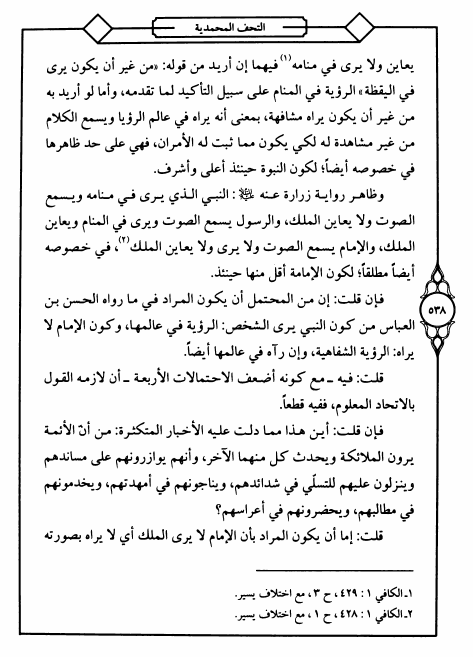 التحف المحمدية
يعاين ولا يرى في منامه(١) فيهما إن أريد من قوله: «من غير أن يكون يرى
في اليقظة» الرؤية في المنام على سبيل التأكيد لما تقدمه، وأما لو أريد به
من غير أن يكون يراه مشافهة، بمعنى أنه يراه في عالم الرؤيا ويسمع الكلام
من غير مشاهدة له لكي يكون مما ثبت له الأمران، فهي على حد ظاهرها
في خصوصه أيضاً؛ لكون النبوة حينئذ أعلى وأشرف.
وظاهر رواية زرارة عنه ﷺ: النبي الذي يرى في منامه ويسمع
الصوت ولا يعاين الملك، والرسول يسمع الصوت ويرى في المنام ويعاين
الملك، والإمام يسمع الصوت ولا يرى ولا يعاين الملك(٢)، في خصوصه
أيضاً مطلقاً؛ لكون الإمامة أقل منها حينئذ.
فإن قلت: إن من المحتمل أن يكون المراد في ما رواه الحسن بن
العباس من كون النبي يرى الشخص: الرؤية في عالمها، وكون الإمام لا
يراه: الرؤية الشفاهية، وإن رآه في عالمها أيضاً.
٥٣٨
قلت: فيه ـ مع كونه أضعف الاحتمالات الأربعة ـ أن لازمه القول
بالاتحاد المعلوم، ففيه قطعاً.
فإن قلت: أين هذا مما دلت عليه الأخبار المتكثرة: من أنّ الأئمة
يرون الملائكة ويحدث كل منهما الآخر، وأنهم يوازرونهم على مساندهم
وينزلون عليهم للتسلّي في شدائدهم، ويناجونهم في أمهدتهم، ويخدمونهم
في مطالبهم، ويحضرونهم في أعراسهم؟
قلت: إما أن يكون المراد بأن الإمام لا يرى الملك أي لا يراه بصورته
١ـ الكافي ١: ٤٢٩، ح ٣، مع اختلاف يسير.
٢ـ الكافي ١: ٤٢٨، ح ١، مع اختلاف يسير.